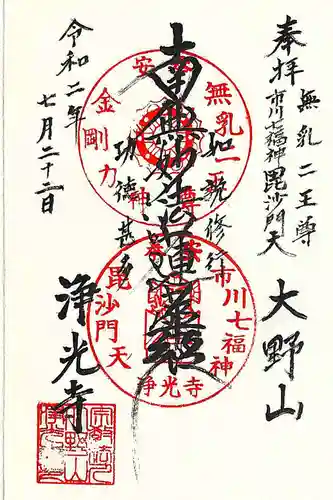 奉拝
無乳二王尊
市川七福神毘沙門天
大野山
南無妙法蓮華経
如説修行
功徳甚多
浄光寺
令和二年
七月二十二日
無乳二王尊
金剛力
市川七福神
毘沙門天
浄光寺